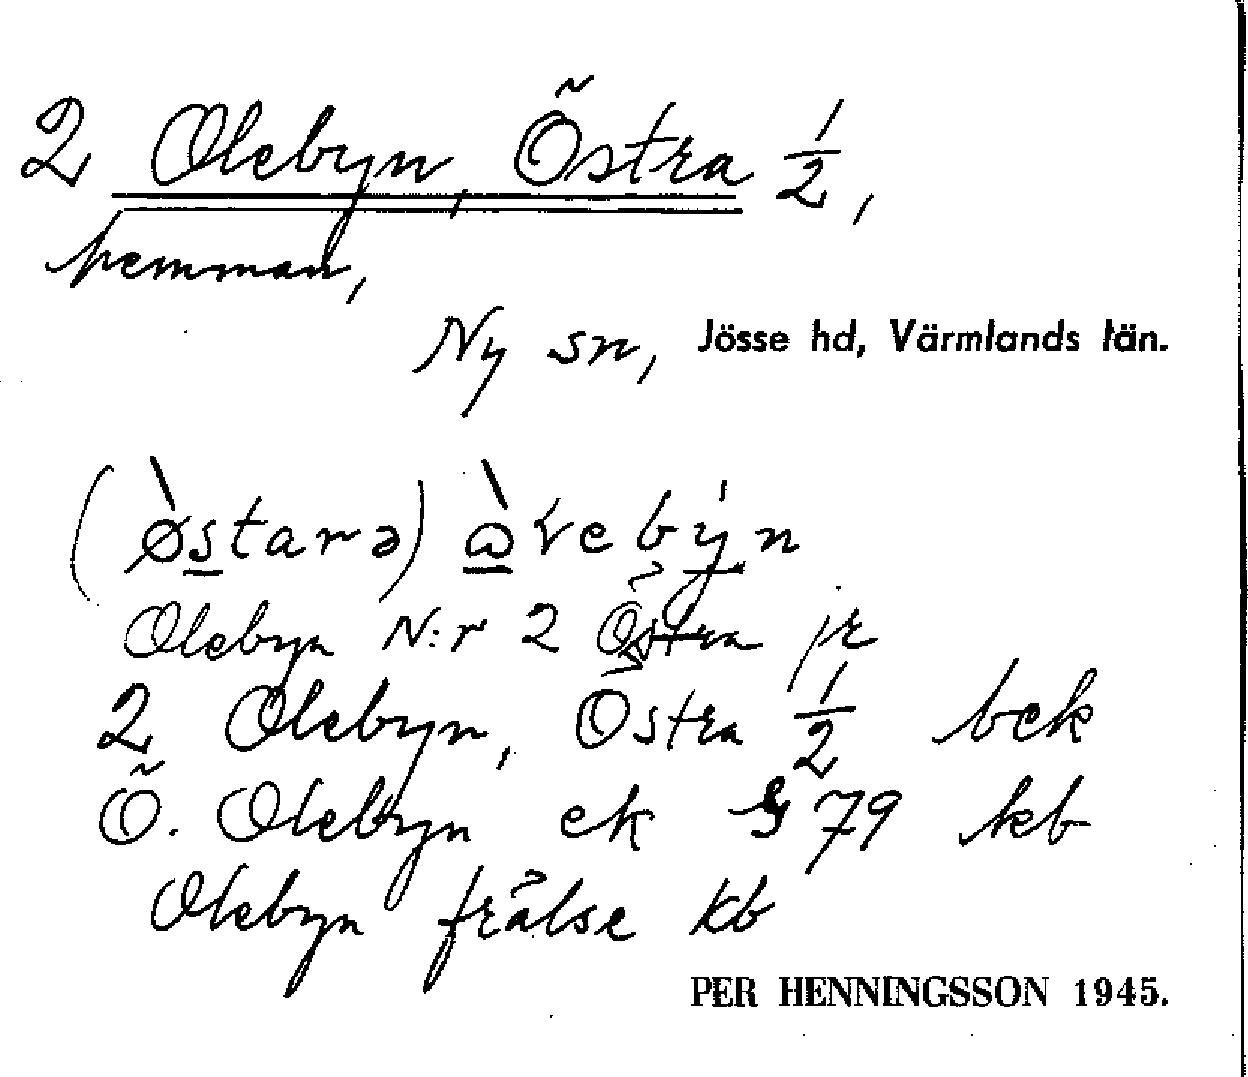 2 Olebyn, Östra 1/2,
hemman,
Ny sn, Jösse hd, Värmlands län.
(ø̀starə) ὼvebýn
Olebyn N:r 2 Östra jr
2 Olebyn, Östra 1/2 bek
Ö. Olebyn ek § 79 kb
Olebyn frälse kb
PER HENNINGSSON 1945.